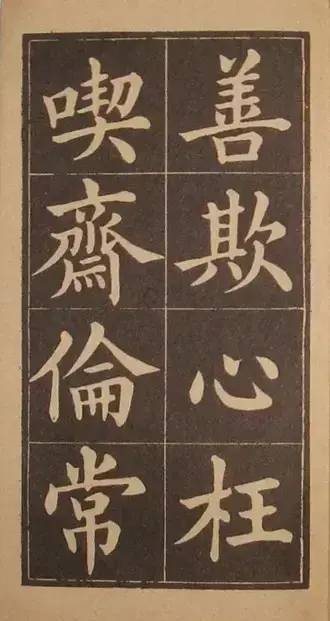 善欺心枉
喫齋倫常